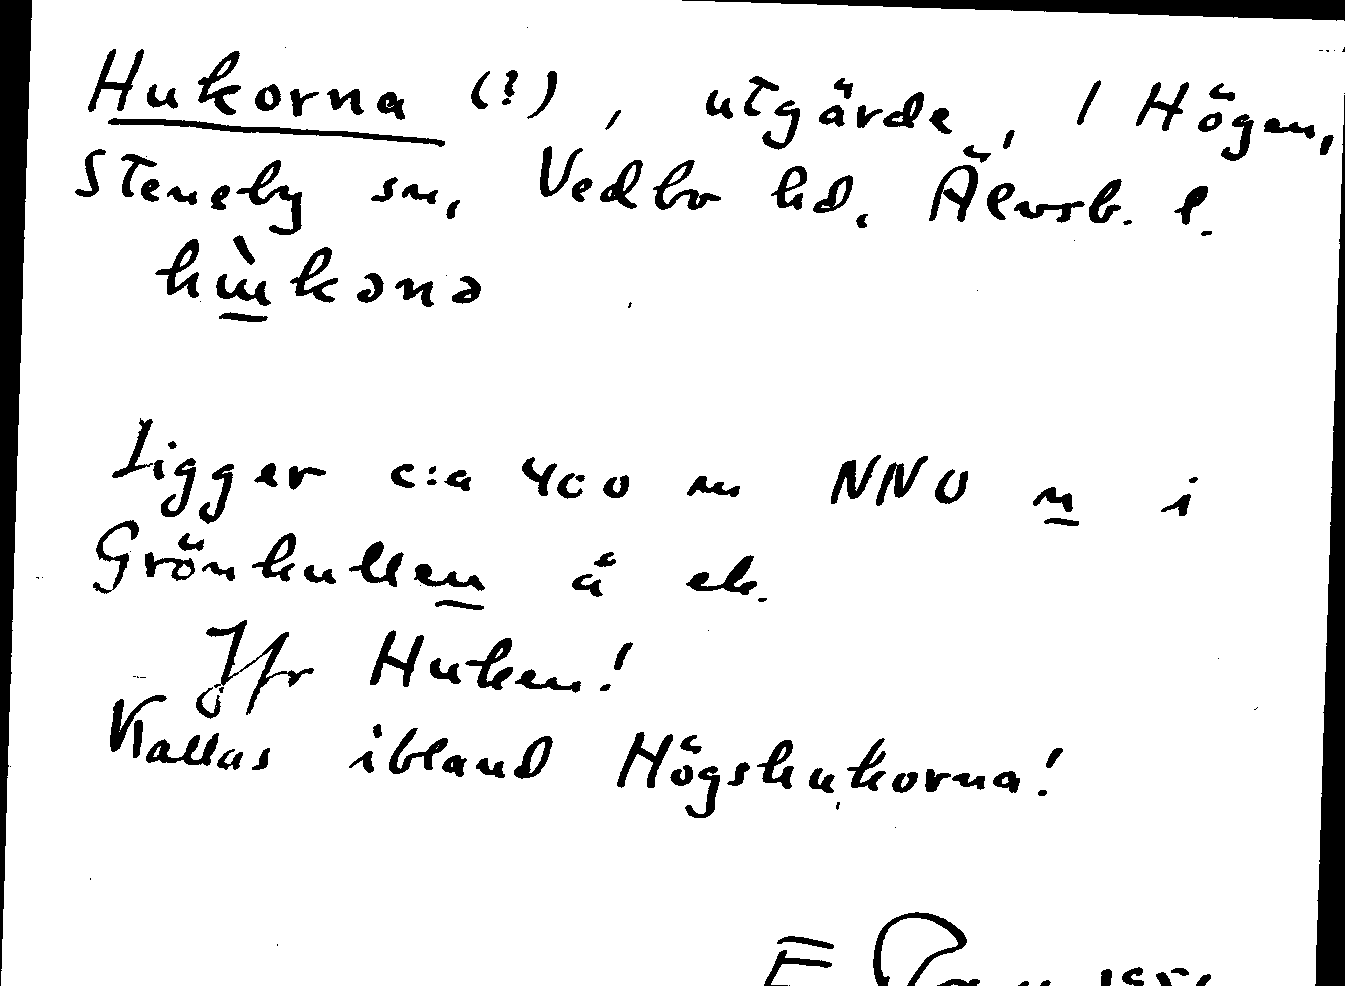 Hukorna (?), utgärde, 1 Högen,
Steneby sn, Vedbo hd, Älvsb. l.
hɯ̀kənə
Ligger c:a 400 m NNO n i
Grönhullen å ek.
Jfr Huken!
Kallas ibland Högshukorna!
E